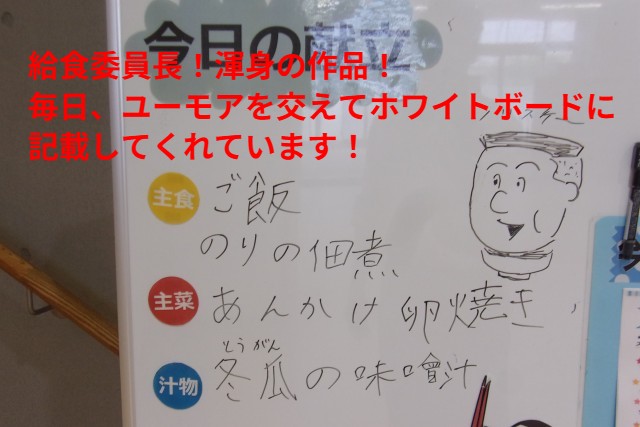 今日の献立
給食委員長！渾身の作品！
毎日、ユーモアを交えてホワイトボードに
記載してくれています！
主食
ご飯
のりの佃煮
主菜
あんかけ卵焼き
とうがん
汁物
冬瓜の味噌汁